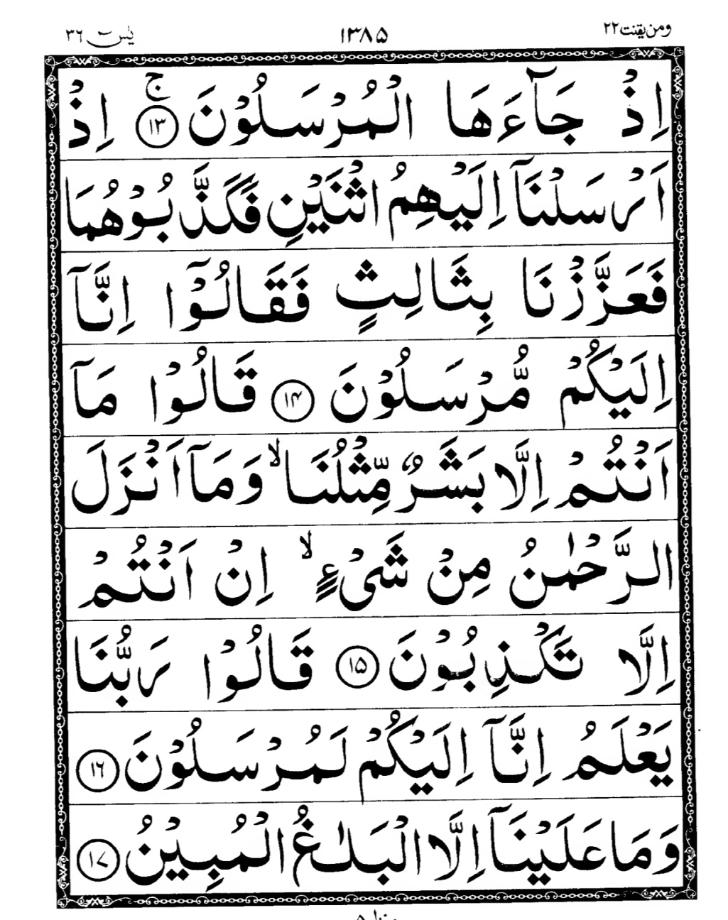 ومن یقنت ۲۲ ۱۳۸۵ یٰسٓ ۳۶
اِذْ جَآءَهَا الْمُرْسَلُوْنَ ﴿۱۳﴾ ج اِذْ
اَرْسَلْنَآ اِلَيْهِمُ اثْنَيْنِ فَكَذَّبُوْهُمَا
فَعَزَّزْنَا بِثَالِثٍ فَقَالُوْٓا اِنَّآ
اِلَيْكُمْ مُّرْسَلُوْنَ ﴿۱۴﴾ قَالُوْا مَآ
اَنْتُمْ اِلَّا بَشَرٌ مِّثْلُنَا ۙ وَمَآ اَنْزَلَ
الرَّحْمٰنُ مِنْ شَيْءٍ ۙ اِنْ اَنْتُمْ
اِلَّا تَكْذِبُوْنَ ﴿۱۵﴾ قَالُوْا رَبُّنَا
يَعْلَمُ اِنَّآ اِلَيْكُمْ لَمُرْسَلُوْنَ ﴿۱۶﴾
وَمَا عَلَيْنَآ اِلَّا الْبَلٰغُ الْمُبِيْنُ ﴿۱۷﴾